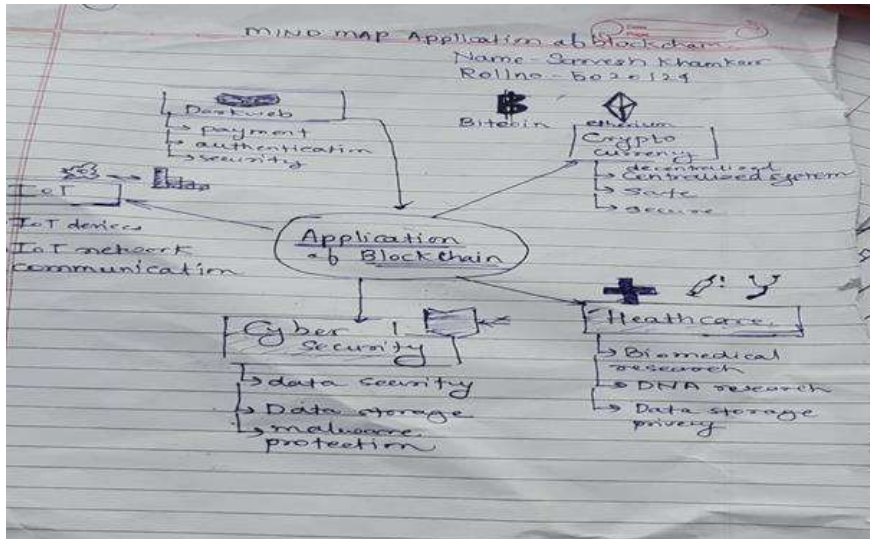 MIND MAP Application of blockchain
Name - Sarvesh Khamkar
Rollno - b020124
Darkweb
payment
authentication
security
Bitcoin
etherium
Crypto
currency
decentralized
Centralized system
Safe
secure
IoT
IoT devices
IoT network
communication
Application
of Blockchain
Cyber
Security
data security
Data storage
malware
protection
Heathcare
Biomedical
research
DNA research
Data storage
privery